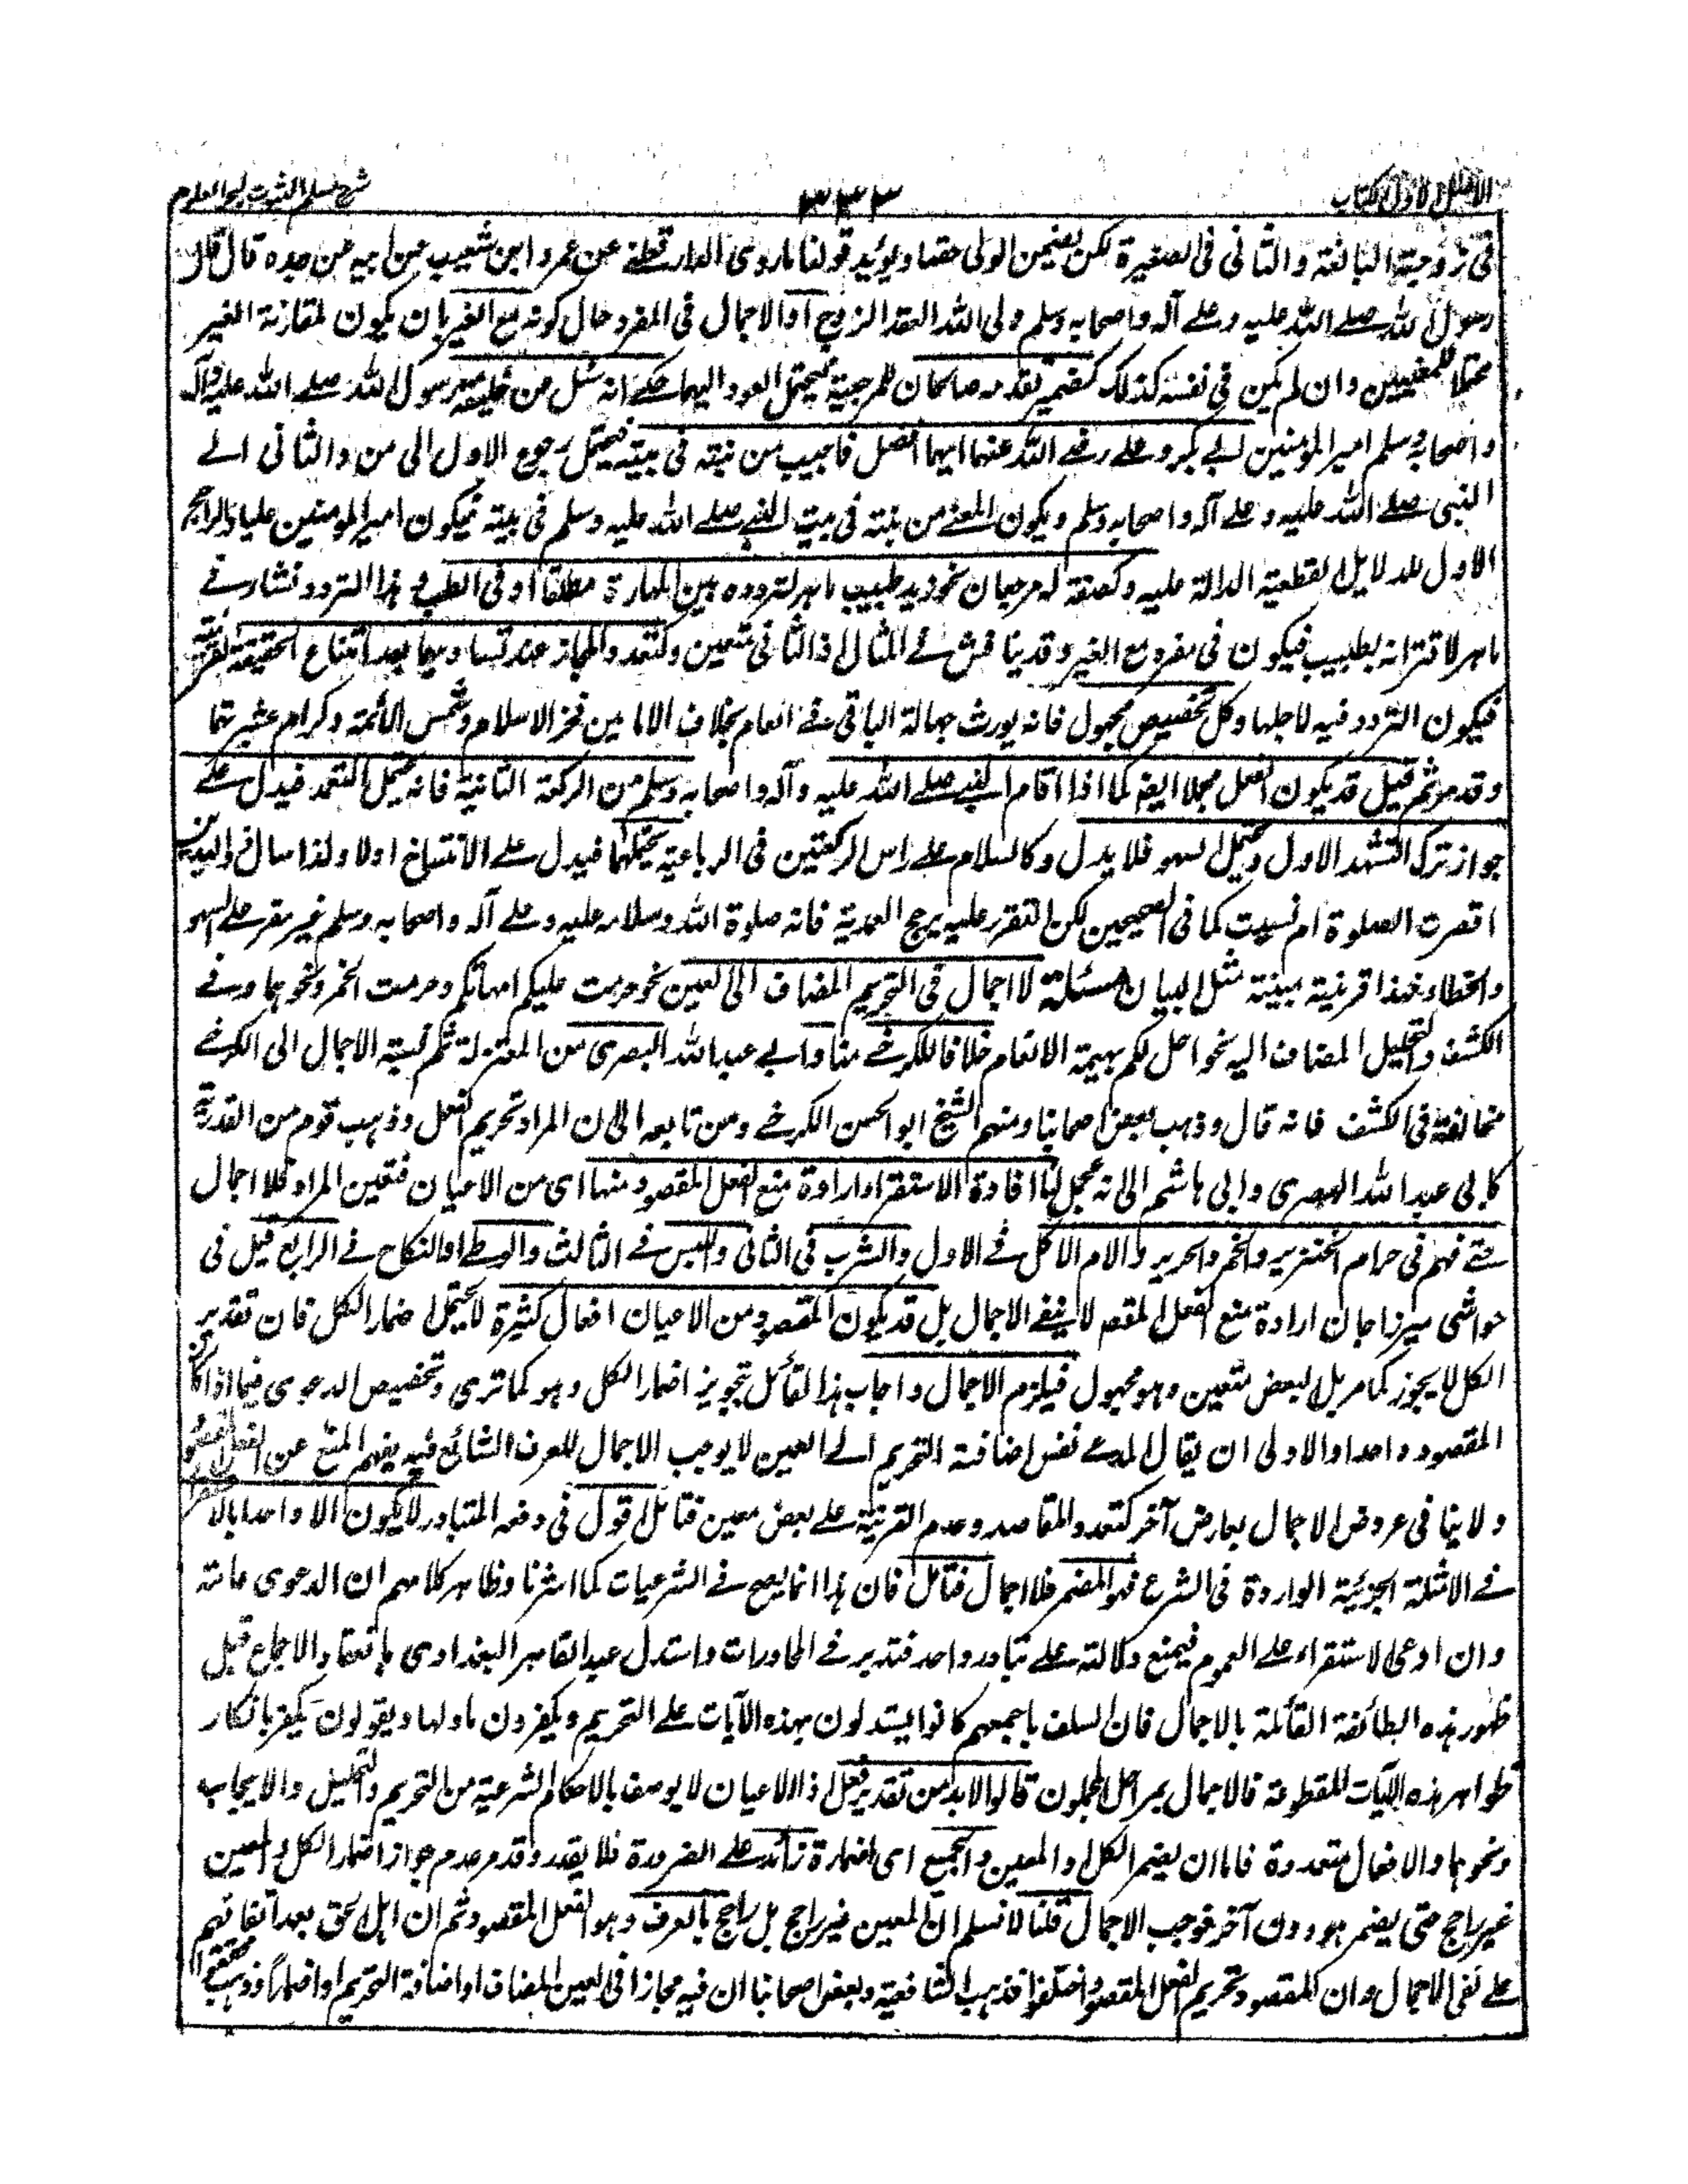 الاصل الاول الكتاب ٣٣٣ شرح مسلم الثبوت لبحر العلوم
فى زوجية البالغة والثانى فى الصغيرة لكن يضمن الولى حقنا ويؤيد قولنا ما روى الدارقطنے عن عمرو ابن شعيب عن ابيه عن جده قال قال
رسول الله صلے الله عليه وعلے آله واصحابه وسلم ولى الله العقد الزوج او الاجمال فى المفرد حال كونه مع الغير بان يكون لمقارنة الغير
محتملا لمعنيين وان لم يكن فى نفسه كذلك كضمير تقدمه صالحان للمرجعية يحتمل العود اليهما حكے انه سئل من خليفة رسول الله صلے الله عليه وآله
واصحابه وسلم امير المؤمنين ابے بكر وعلے رضے الله عنهما ايهما افضل فاجيب من بنته فى بيته فيحتمل رجوع الاول الى من والثانى الے
النبى صلے الله عليه وعلے آله واصحابه وسلم ويكون المعنے من بنته فى بيت النبے صلے الله عليه وسلم فى بيته فيكون امير المؤمنين عليا والراجح
الاول للدلايل القطعية الدالة عليه وكصفة له مرجعان نحو زيد طبيب ماهر لتردده بين المهارة مطلقا او فى الطب وهذا التردد نشار فے
ماهر لاقترانه بطبيب فيكون فى مفرد مع الغير وقد يناقش فے المثال اذ الثانى متعين وكتعدد المجاز عند تساويها بعد امتناع الحقيقة بقرينة
فيكون التردد فيه لاجلها وكل تخصيص مجهول فانه يورث جهالة الباقى فے العام بخلاف الامامين فخر الاسلام وشمس الائمة وكرام عشيرتهما
وقد مر ثم قيل قد يكون الفعل مجملا ايضا كما اذا قام النبے صلے الله عليه وآله واصحابه وسلم من الركعة الثانية فانه يحتمل التعمد فيدل علے
جواز ترك التشهد الاول ويحتمل السهو فلا يدل وكالسلام علے راس الركعتين فى الرباعية يحتملهما فيدل علے الانتساخ اولا ولذا سال ذو اليدين
اقصرت الصلوة ام نسيت كما فى الصحيحين لكن التقرر عليه يرجح العمدية فانه صلوة الله وسلامه عليه وعلے آله واصحابه وسلم غير مقر علے السهو
والخطاء فهذا قرينة مبينة مثل البيان مسئلة لا اجمال فى التحريم المضاف الى العين نحو حرمت عليكم امهاتكم وحرمت الخمر ونحوهما وفے
الكشف والتحليل المضاف اليه نحو احل لكم بهيمة الانعام خلافا للكرخے منا وابے عبد الله البصرى من المعتزلة ثم نسبة الاجمال الى الكرخے
مخالفة فى الكشف فانه قال وذهب بعض اصحابنا ومنهم الشيخ ابو الحسن الكرخے ومن تابعه الى ان المراد تحريم الفعل وذهب قوم من القدرية
كابى عبد الله البصرى وابى هاشم الى انه مجمل لنا افادة الاستقراء ارادة منع الفعل المقصود منها اى من الاعيان فتعين المراد فلا اجمال
حتے فهم فى حرام الخنزير والخمر والحرير والام الاكل فے الاول والشرب فى الثانى واللبس فے الثالث والوطے او النكاح فے الرابع قيل فى
حواشى ميرزا جان ارادة منع الفعل المقصود لا ينفے الاجمال بل قد يكون المقصود من الاعيان افعال كثيرة لا يحتمل اضمار الكل فان تقدير
الكل لا يجوز كما مر بل البعض متعين وهو مجهول فيلزم الاجمال واجاب هذا القائل بتجويز اضمار الكل وهو كما ترى وتخصيص الدعوى فيما اذا كان
المقصود واحدا والاولى ان يقال المدعے نفس اضافة التحريم الے العين لا يوجب الاجمال للعرف الشائع فيه يفهم المنع عن الفعل المقصود
ولا ينافى عروض الاجمال بعارض آخر كتعدد المقاصد وعدم القرينة علے بعض معين فتامل اقول فى دفعه المتبادر لا يكون الا واحدا بالا
فے الامثلة الجزئية الواردة فى الشرع فهو المضمر فلا اجمال فتامل فان هذا انما يصح فے الشرعيات كما اشرنا وظاهر كلامهم ان الدعوى عامة
وان ادعى الاستقراء علے العموم فيمنع دلالته علے تبادر واحد فتدبر فے المحاورات واستدل عبد القاهر البغدادى بانعقاد الاجماع قبل
ظهور هذه الطائفة القائلة بالاجمال فان السلف باجمعهم كانوا يستدلون بهذه الآيات علے التحريم ويكفرون ماولها ويقولون يكفر بانكار
ظواهر هذه الآيات المقطوعة فالاجمال بمراحل المجملون قالوا لا بد من تقدير فعل اذ الاعيان لا يوصف بالاحكام الشرعية من التحريم والتحليل والايجاب
ونحوها والافعال متعددة فاما ان يضمر الكل او المعين والجميع اى اضماره زائد علے الضرورة فلا يقدر وقد مر عدم جواز اضمار الكل والمعين
غير راجح حتى يضمر هو دون آخر فوجب الاجمال قلنا لا نسلم ان المعين غير راجح بل راجح بالعرف وهو الفعل المقصود ثم ان اهل الحق بعد اتفاقهم
علے نفى الاجمال وان المقصود تحريم الفعل المقصود اختلفوا فذهب الشافعية وبعض اصحابنا ان فيه مجازا فى العين المضاف او اضافة التحريم او اضمارا وذهب محققوا